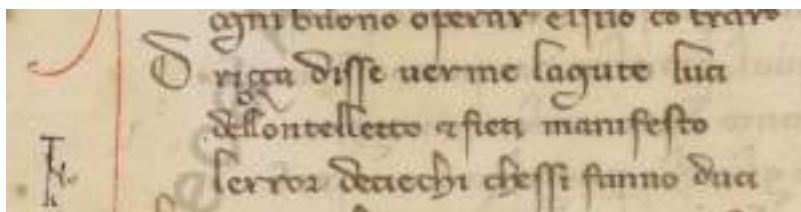 ogni buono operar elsuo cõtraro
Driçça disse uerme lagute luci
dellontelletto ⁊ fieti manifesto
lerror deciechi chessi fanno duci